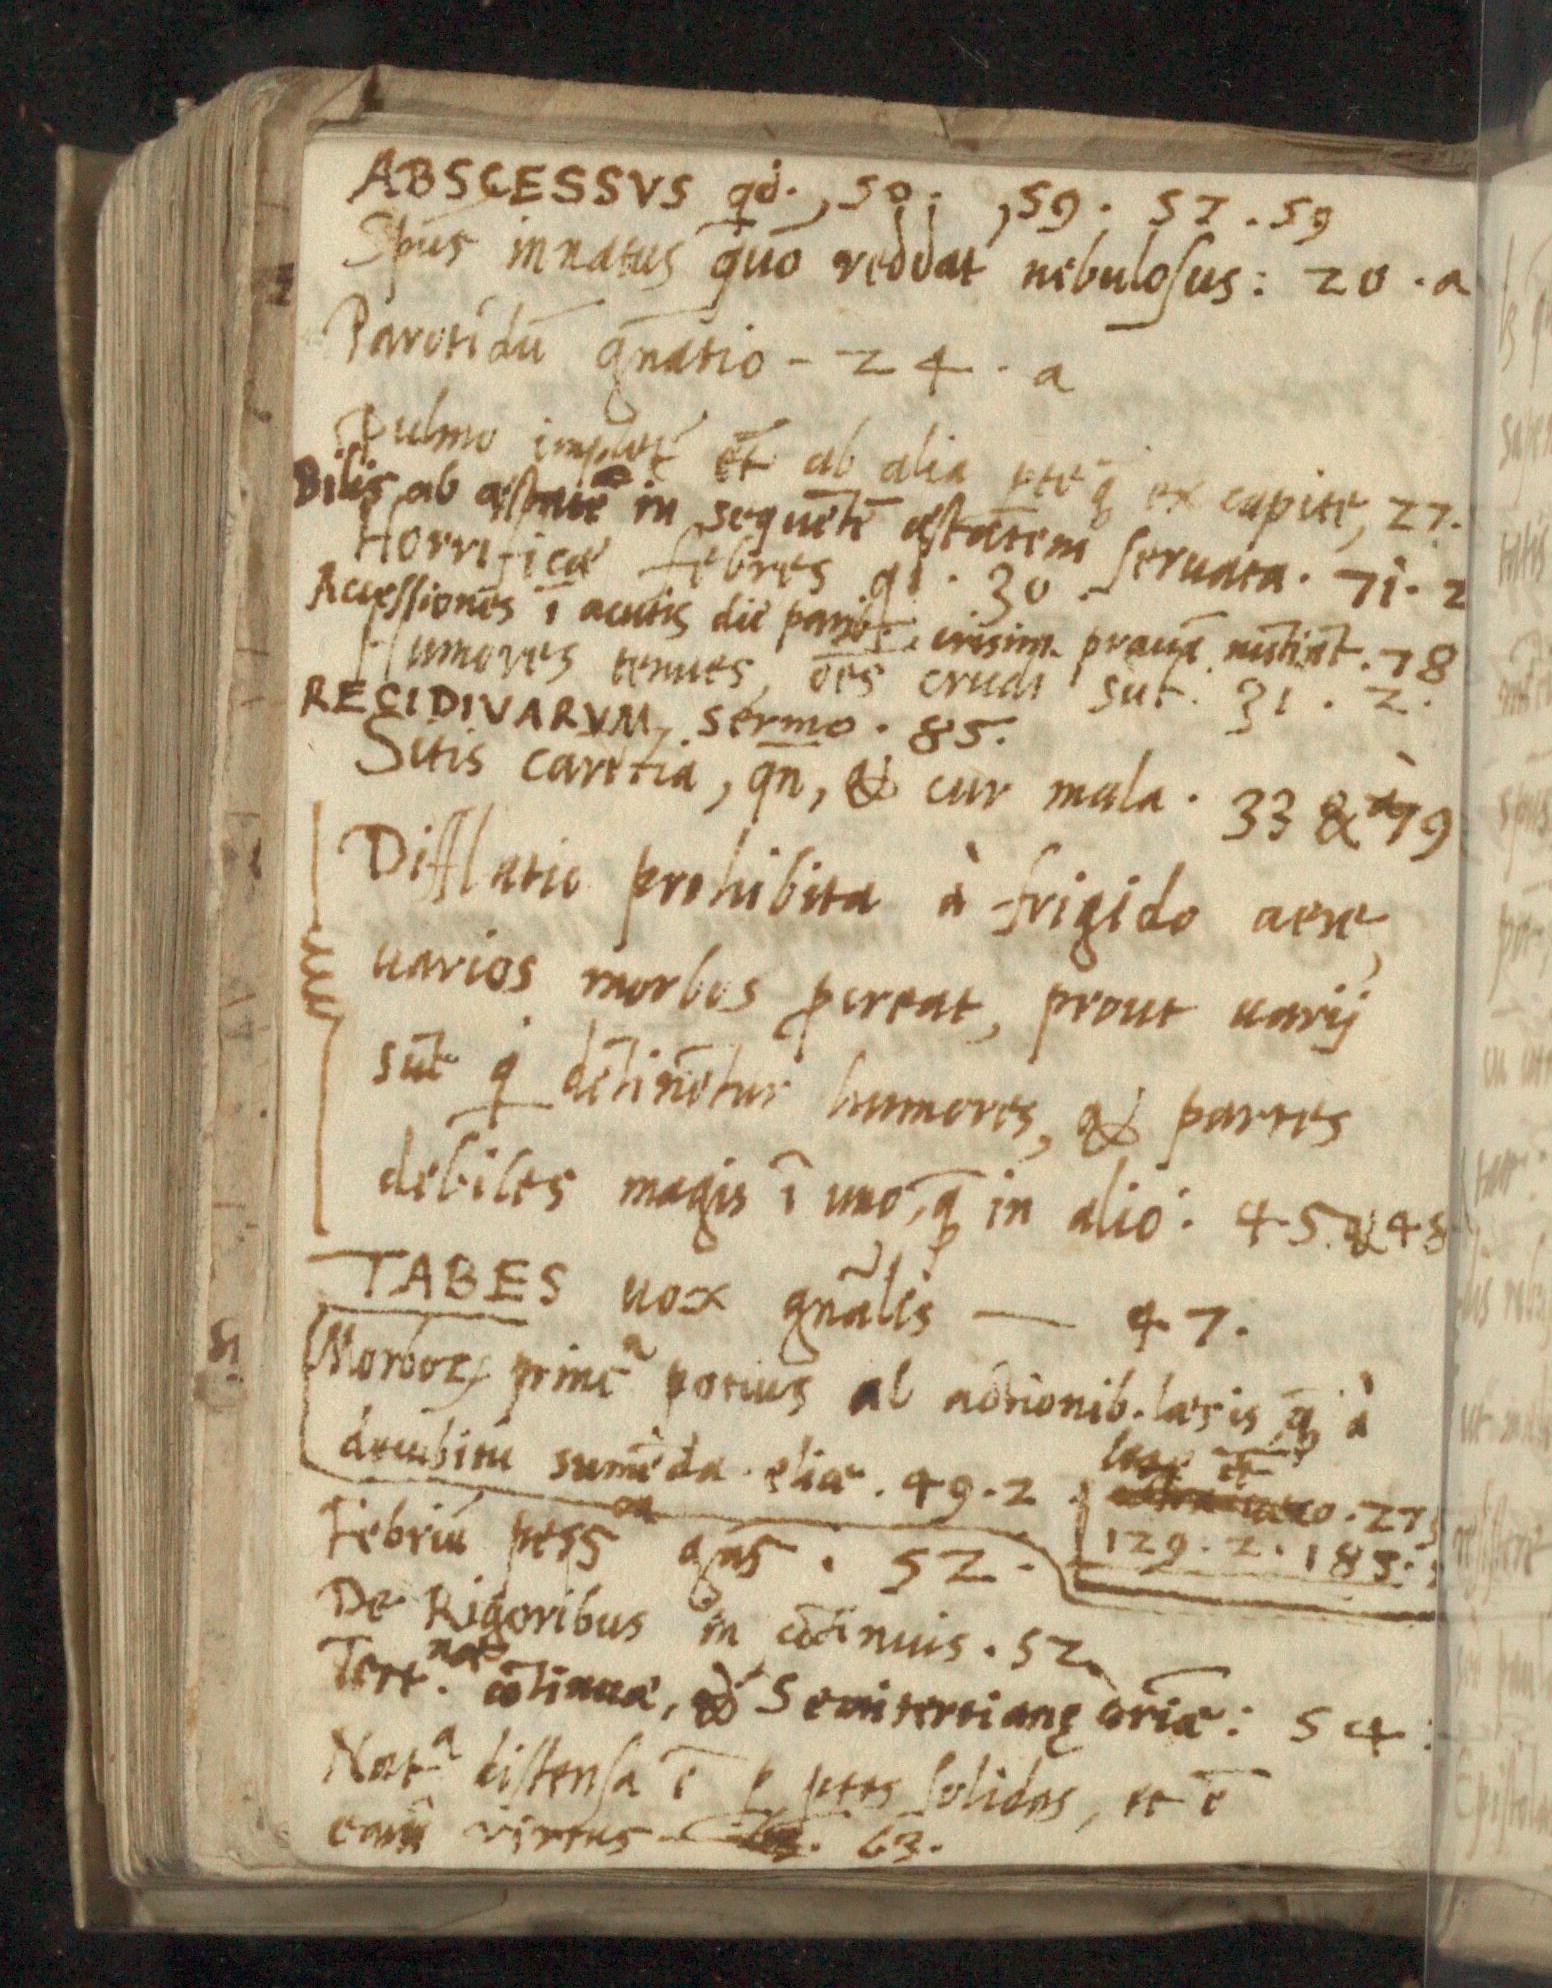 ABSCESSVS qd. , 50. , 59. 57. 59
Spūs innatus quō reddat nebulosus: 20. a
Parotidū gn̄atio - 24. a
Pulmo implet̄ et̄ ab alia pte q̄ ex capite, 27.
Bilis ab æstate in sequētē æstatem seruata. 71. 2
Horrificæ febres qi. 30.
Accessiones ī acutis die parib. crisim prauā nūtiāt. 78
Humores tenues, oēs crudi sūt. 31. 2.
RECIDIVARVM, sermo. 85.
Sitis carētia, qn̄, & cur mala. 33 & 79
Difflatio prohibita à frigido aere,
uarios morbos pcreat, prout uarij
sūt q detinētur humores, & partes
debiles magis ī uno, q̄ in alio: 45. & 48
TABES uox gn̄alis — 47.
Morboꝝ princ.ª potius ab actionib. læsis q̄ à
decubitu sumēda. 49. 2
et̄
27
129. 2. 185.
Febriū pess 52.
De Rigoribus in cōtinuis. 52.
Tert. nar cōtinuæ, & Semitertianę 54:
Nat.ª distensa ē p ptes solidas, et ē
earū virtus 63.